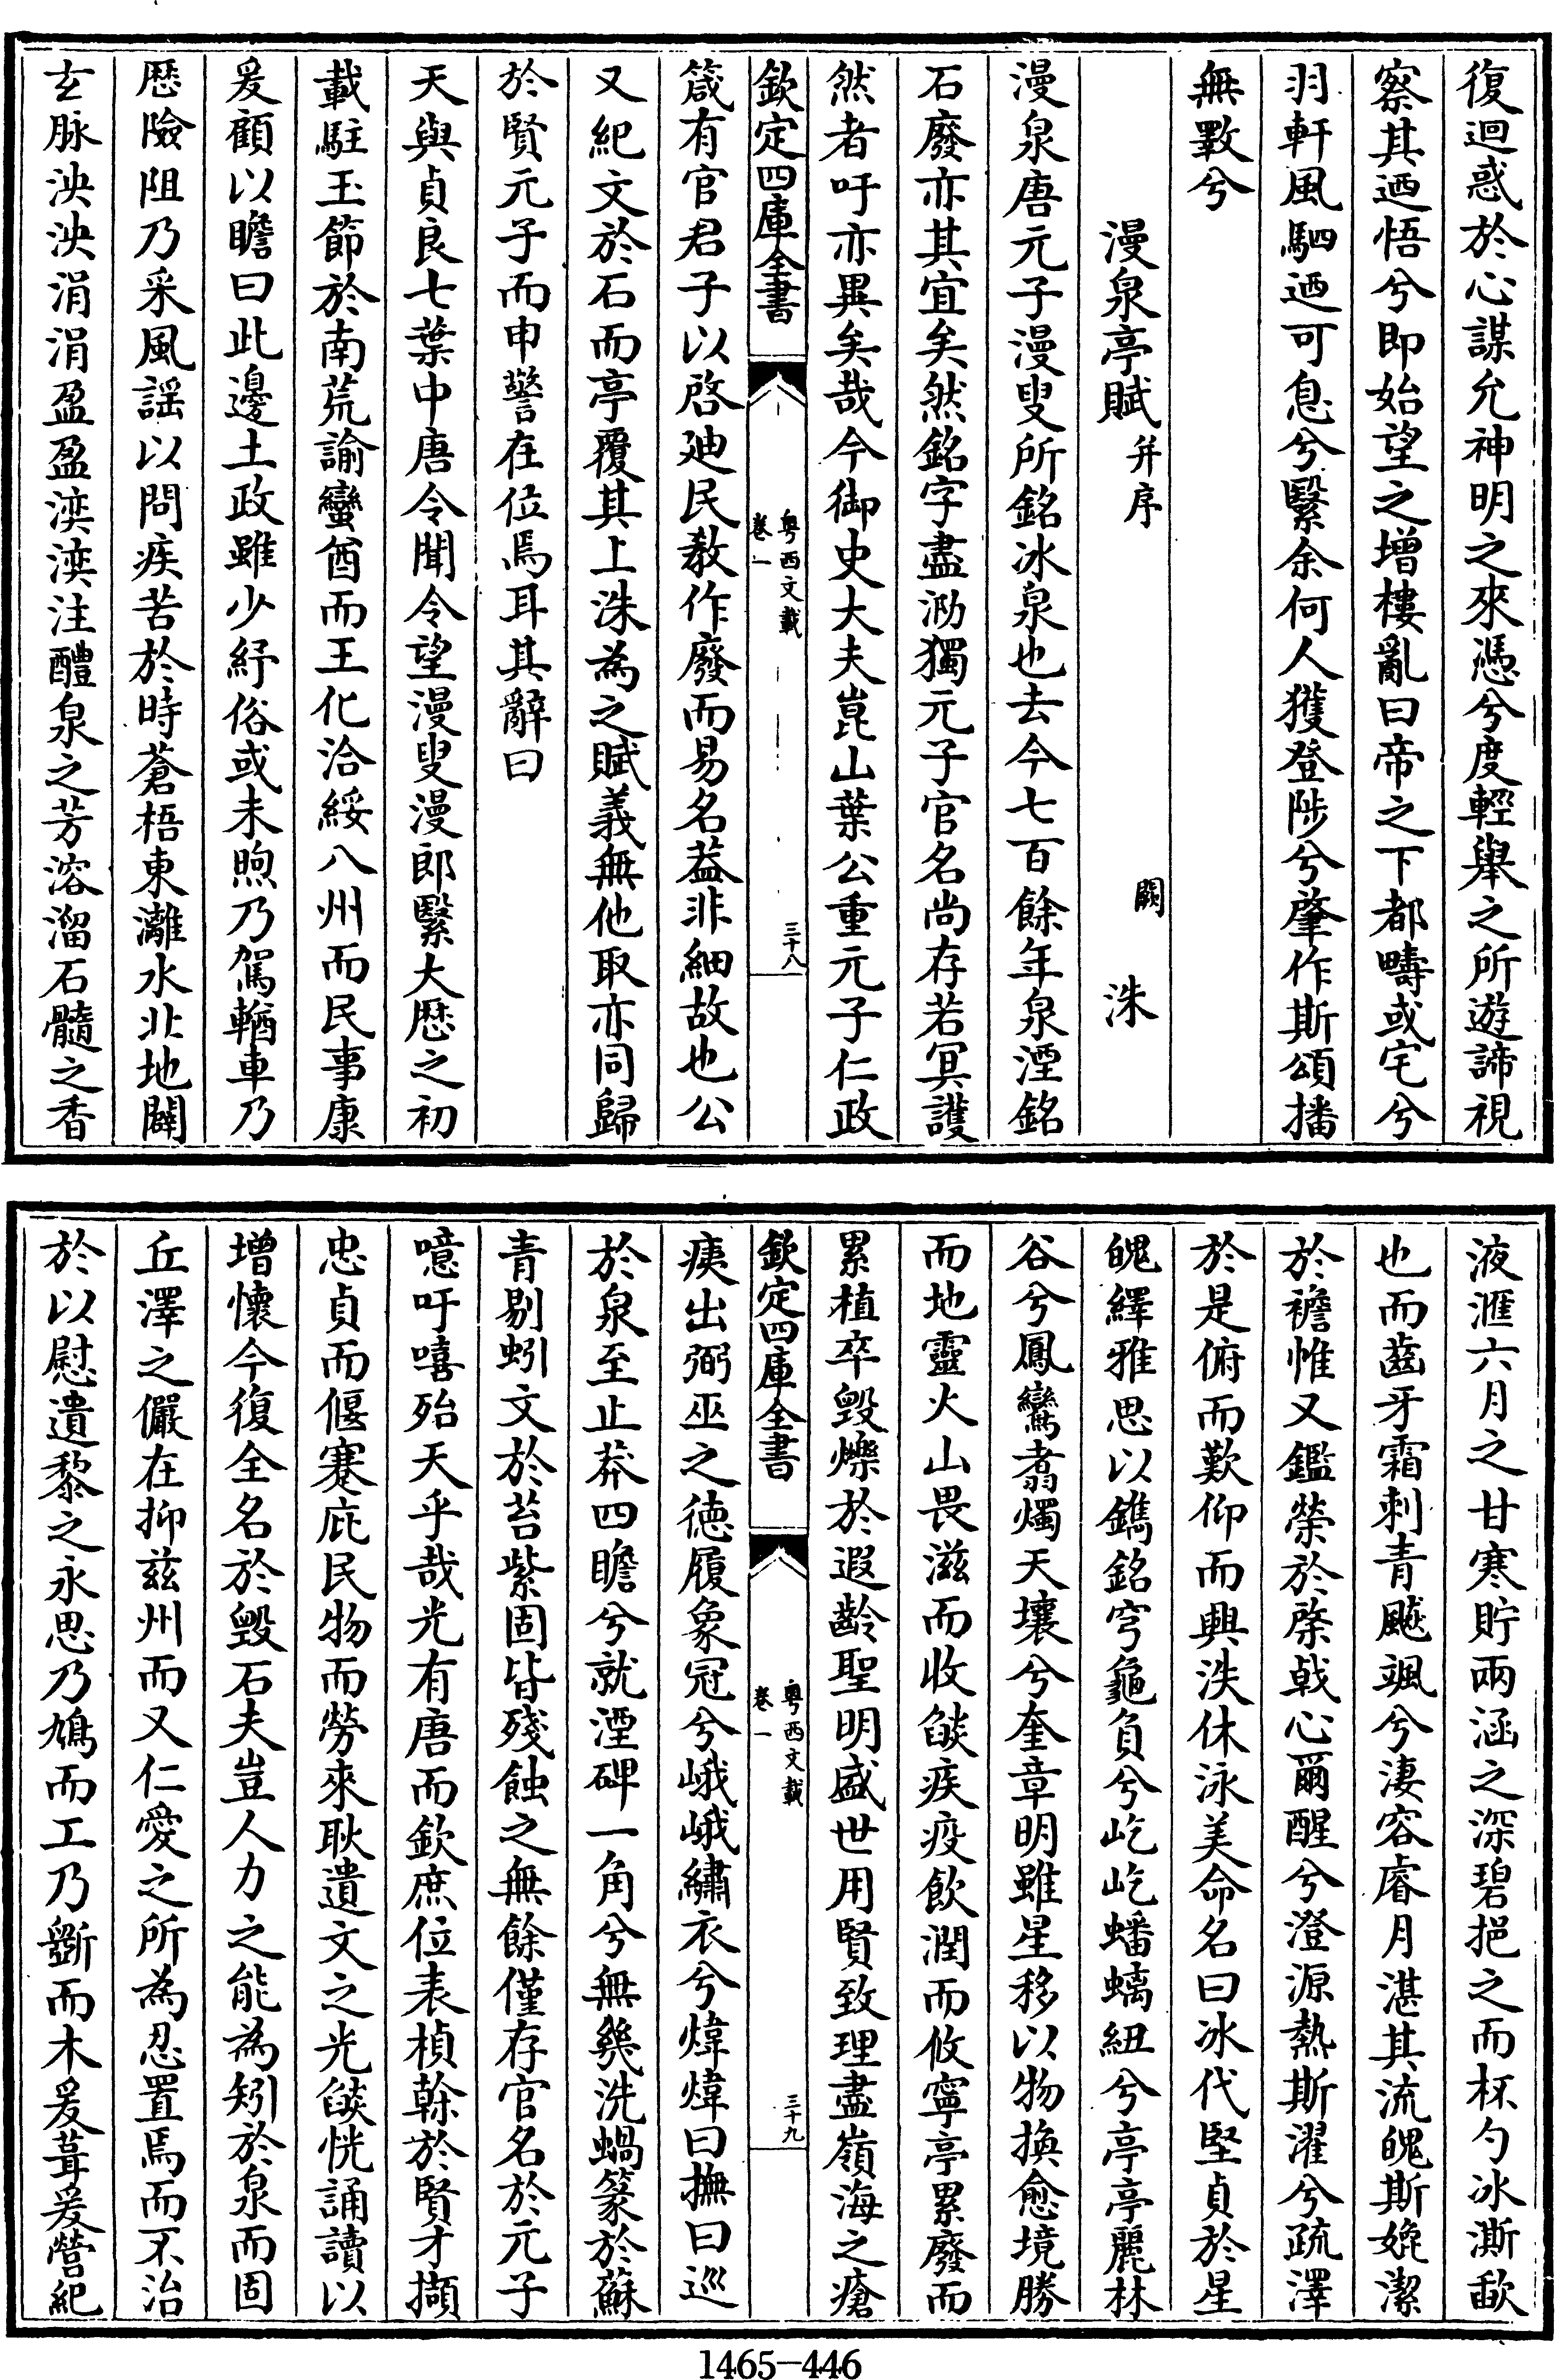 復迴惑於心謀允神明之來憑兮度輕舉之所遊諦視
察其迺悟兮即始望之增樓亂曰帝之下都疇或宅兮
羽軒風駟迺可息兮繄余何人獲登陟兮肇作斯頌播
無斁兮
漫泉亭賦并序 闕 洙
漫泉唐元子漫叟所銘冰泉也去今七百餘年泉湮銘
石廢亦其宜矣然銘字盡泐獨元子官名尚存若冥護
然者吁亦異矣哉今御史大夫崑山葉公重元子仁政
欽定四庫全書 粵西文載 卷一 三十八
箴有官君子以啓廸民教作廢而易名蓋非細故也公
又紀文於石而亭覆其上洙為之賦義無他取亦同歸
於賢元子而申警在位焉耳其辭曰
天與貞良七葉中唐令聞令望漫叟漫郎繄大歴之初
載駐玉節於南荒諭蠻酋而王化洽綏八州而民事康
爰顧以瞻曰此邊土政雖少紓俗或未煦乃駕輶車乃
歴險阻乃采風謡以問疾苦於時蒼梧東灕水北地闢
玄脉泱泱涓涓盈盈湙湙注醴泉之芳溶溜石髓之香
液滙六月之甘寒貯兩涵之深碧挹之而杯勺冰澌歃
也而齒牙霜刺青飇颯兮淒容睿月湛其流魄斯娩潔
於襜帷又鑑榮於棨戟心爾醒兮澄源熱斯濯兮疏澤
於是俯而歎仰而興泆休泳美命名曰冰代堅貞於星
魄繹雅思以鐫銘穹龜負兮屹屹蟠螭紐兮亭亭麗林
谷兮鳳鸞翥燭天壤兮奎章明雖星移以物換愈境勝
而地靈火山畏滋而收燄疾疫飲潤而攸寧亭累廢而
累植卒毀爍於遐齡聖明盛世用賢致理盡嶺海之瘡
欽定四庫全書 粵西文載 卷一 三十九
痍出弼巫之徳履象冠兮峨峨繡衣兮煒煒曰撫曰巡
於泉至止莽四瞻兮就湮碑一角兮無幾洗蝸篆於蘇
青剔蚓文於苔紫固皆殘蝕之無餘僅存官名於元子
噫吁嘻殆天乎哉光有唐而欽庶位表楨榦於賢才擷
忠貞而偃蹇庇民物而勞來耿遺文之光燄恍誦讀以
增懷今復全名於毀石夫豈人力之能為矧於泉而固
丘澤之儼在抑兹州而又仁愛之所為忍置焉而不治
於以慰遺黎之永思乃鳩而工乃斵而木爰葺爰營紀
1465-446